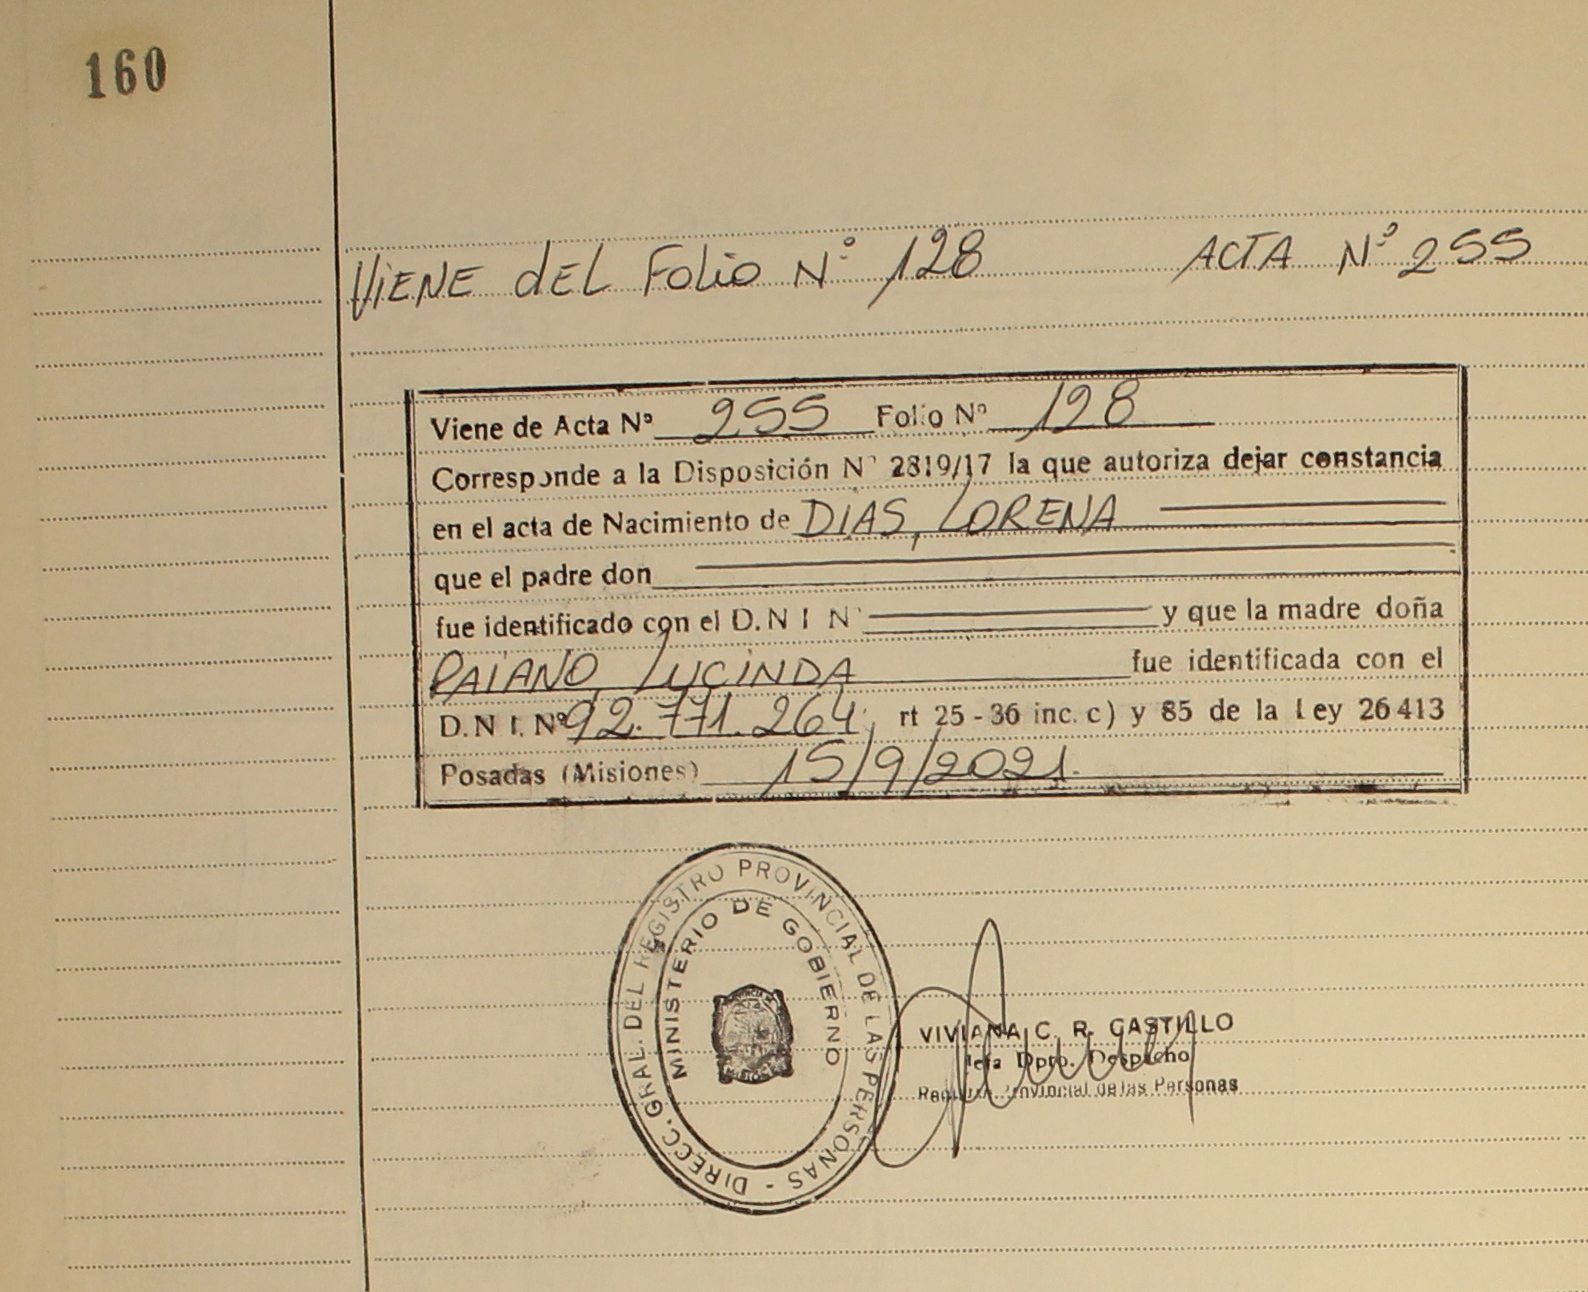 160
VIENE dEL FOLIO Nº 128 ACTA Nº 255
Viene de Acta Nº 255 Folio Nº 128
Corresponde a la Disposición Nº 2819/17 la que autoriza dejar constancia
en el acta de Nacimiento de DIAS, LORENA
que el padre don
fue identificado con el D.N I N y que la madre doña
PAIANO, LUCINDA fue identificada con el
D.N I. Nº 92.771.264; rt 25-36 inc. c) y 85 de la Ley 26413
Posadas (Misiones) 15/9/2021.
DIRECC. GRAL. DEL REGISTRO PROVINCIAL DE LAS PERSONAS -
MINISTERIO DE GOBIERNO
VIVIANA C. R. CASTILLO
Jefa Dpto. Despacho
Registro Provincial de las Personas